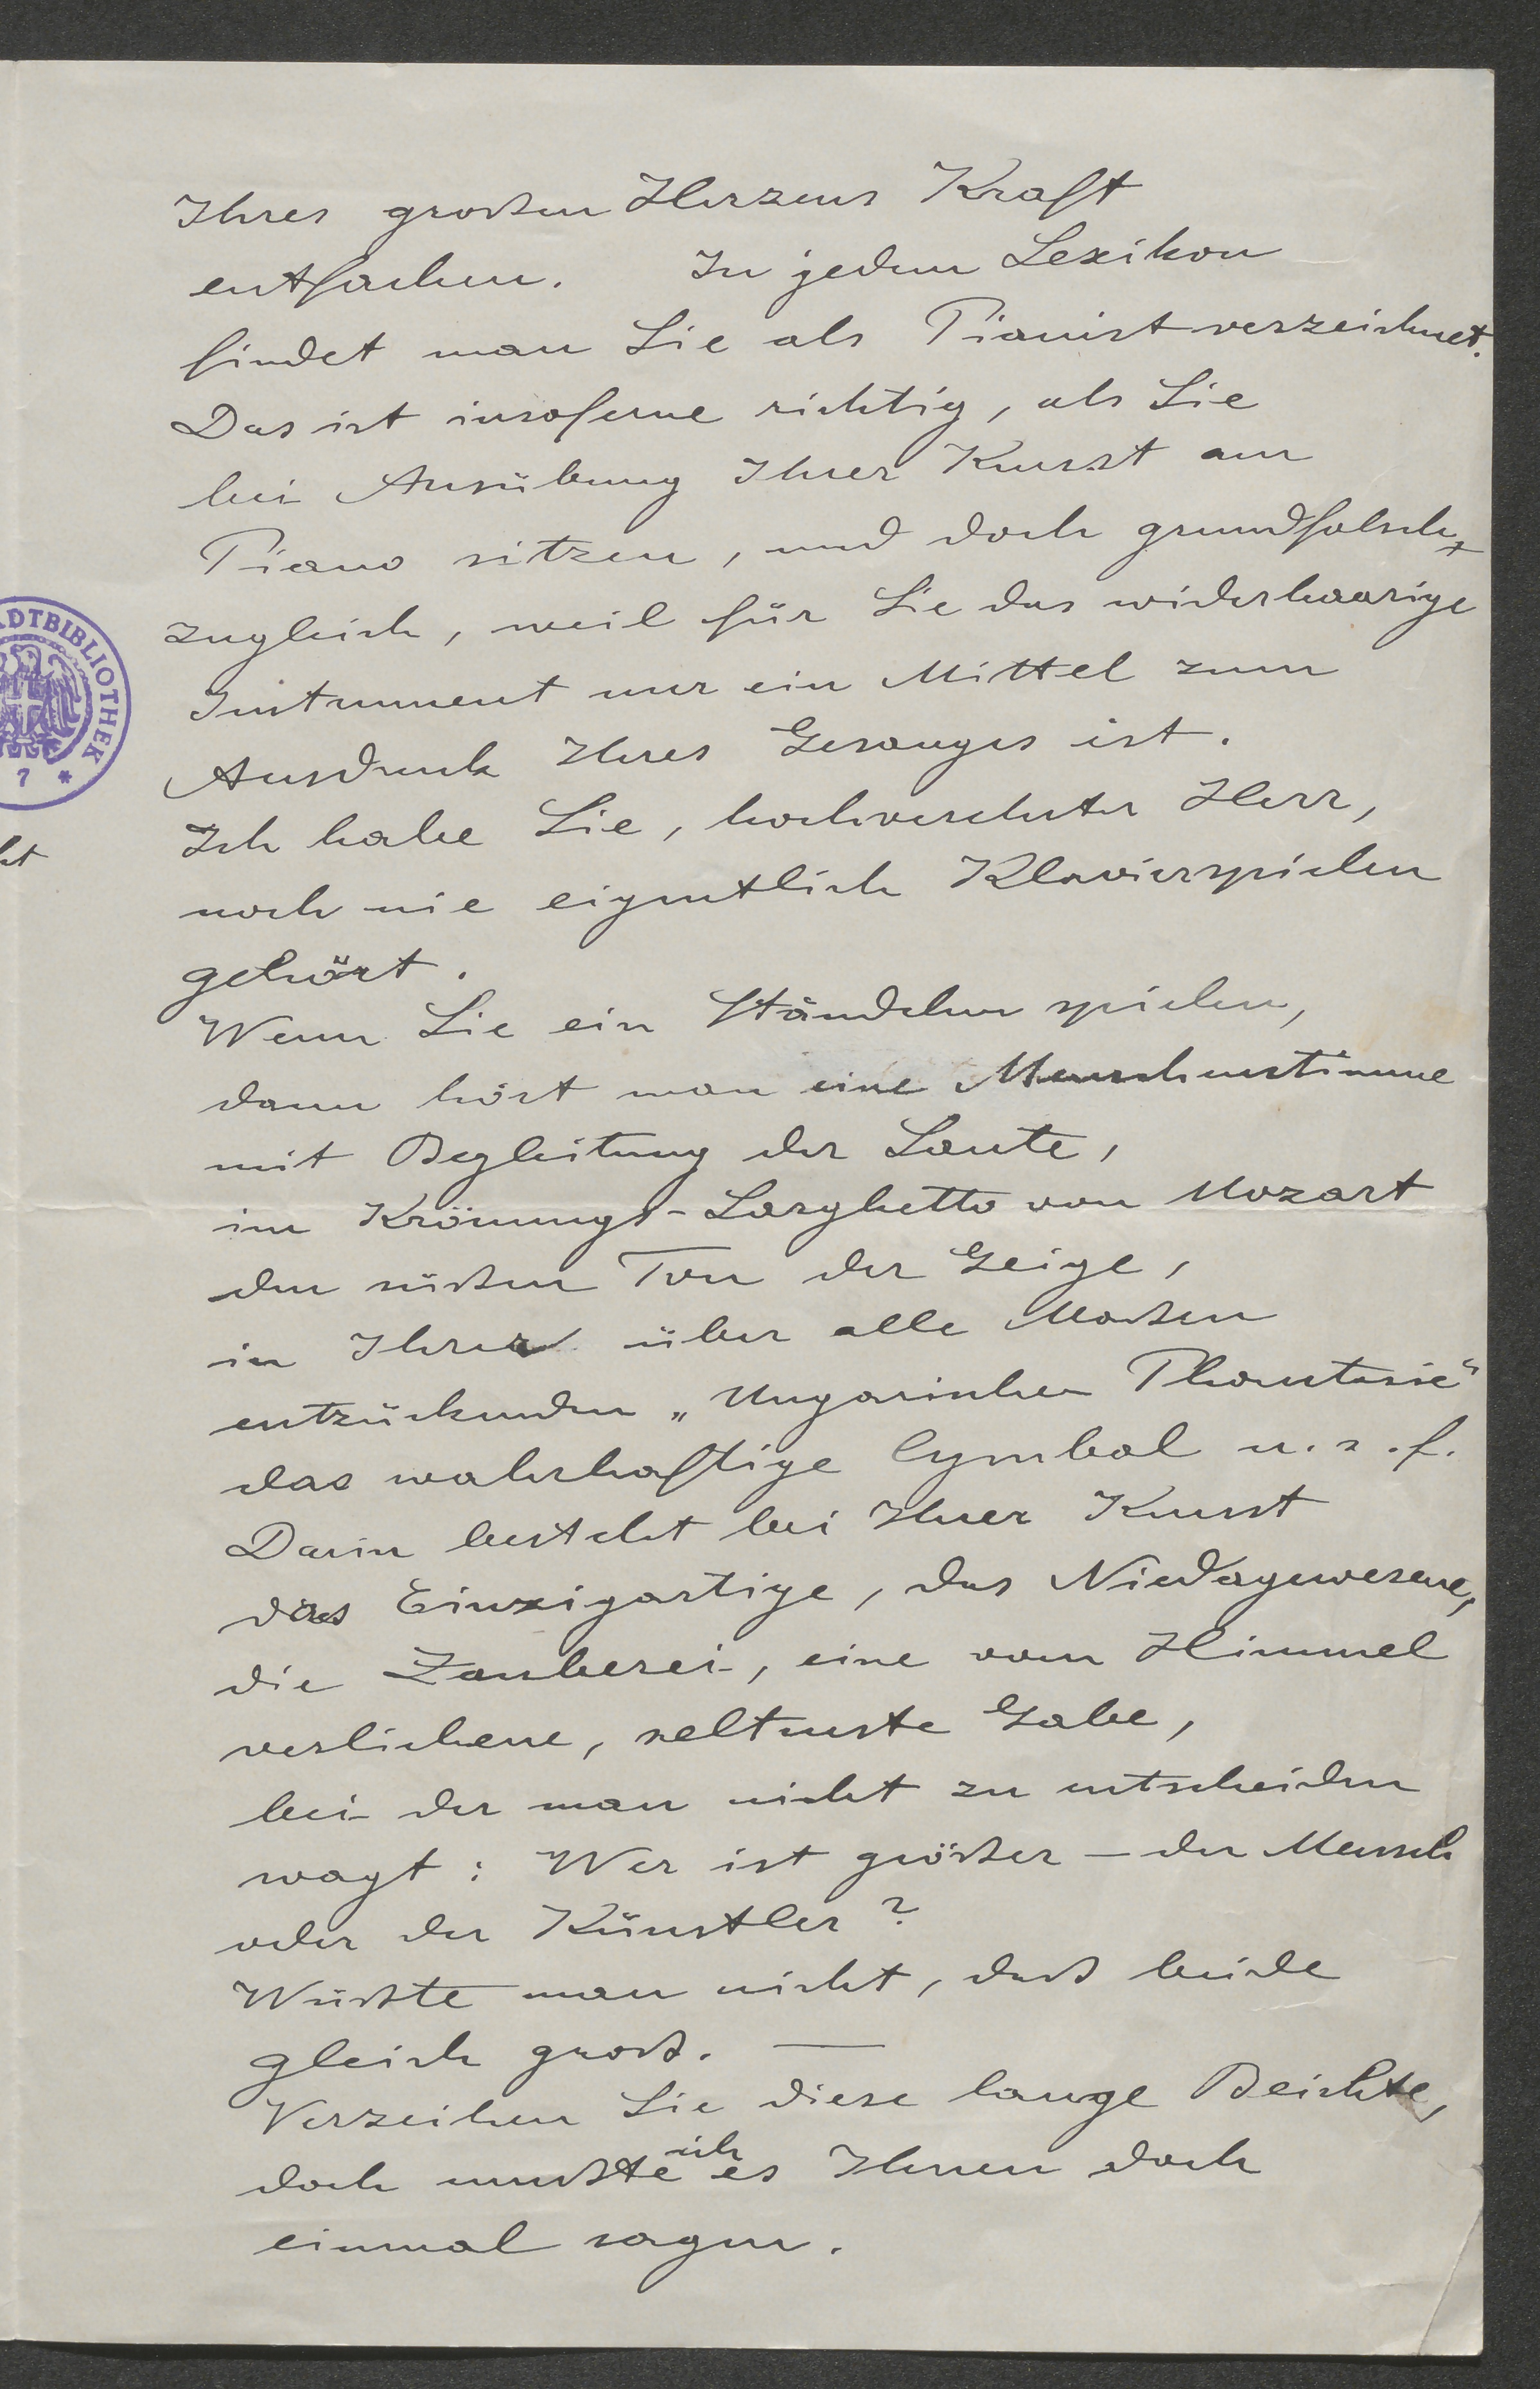 Ihres großen Herzens Kraft
entfachen. In jedem Lexikon
findet man Sie als Pianist verzeichnet.
Das ist insoferne richtig, als Sie
bei Ausübung Ihrer Kunst am
Piano sitzen, und doch grundfalsch
zugleich, weil für Sie das widerhaarige
Instrument nur ein Mittel zum
Ausdruck Ihres Gesanges ist.
Ich habe Sie, hochverehrter Herr,
noch nie eigentlich Klavierspielen
gehört.
Wenn Sie ein Ständchen spielen,
dann hört man eine Menschenstimme
mit Begleitung der Laute,
im Krönungs-Larghetto von Mozart
den süßen Ton der Geige,
in Ihrer über alle Maßen
entzückenden „Ungarischen Phantasie"
das wahrhaftige Cymbal u. s. f.
Darin besteht bei Ihrer Kunst
das Einzigartige, das Niedagewesene,
die Zauberei, eine vom Himmel
verliehene, seltenste Gabe,
bei der man nicht zu entscheiden
wagt: Wer ist größer – der Mensch
oder der Künstler?
Wüßte man nicht, daß beide
gleich groß. —
Verzeihen Sie diese lange Beichte,
doch mußte ich es Ihnen doch
einmal sagen.
ADTBIBLIOTHEK
7 *